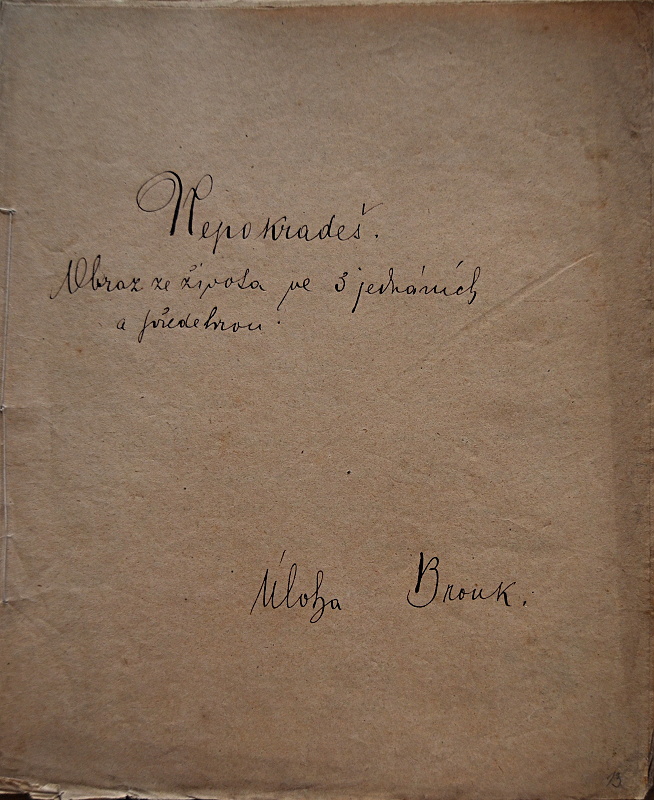 Nepokradeš.
Obraz ze života ve 3 jednáních
a předehrou.
Úloha Brouk.
13